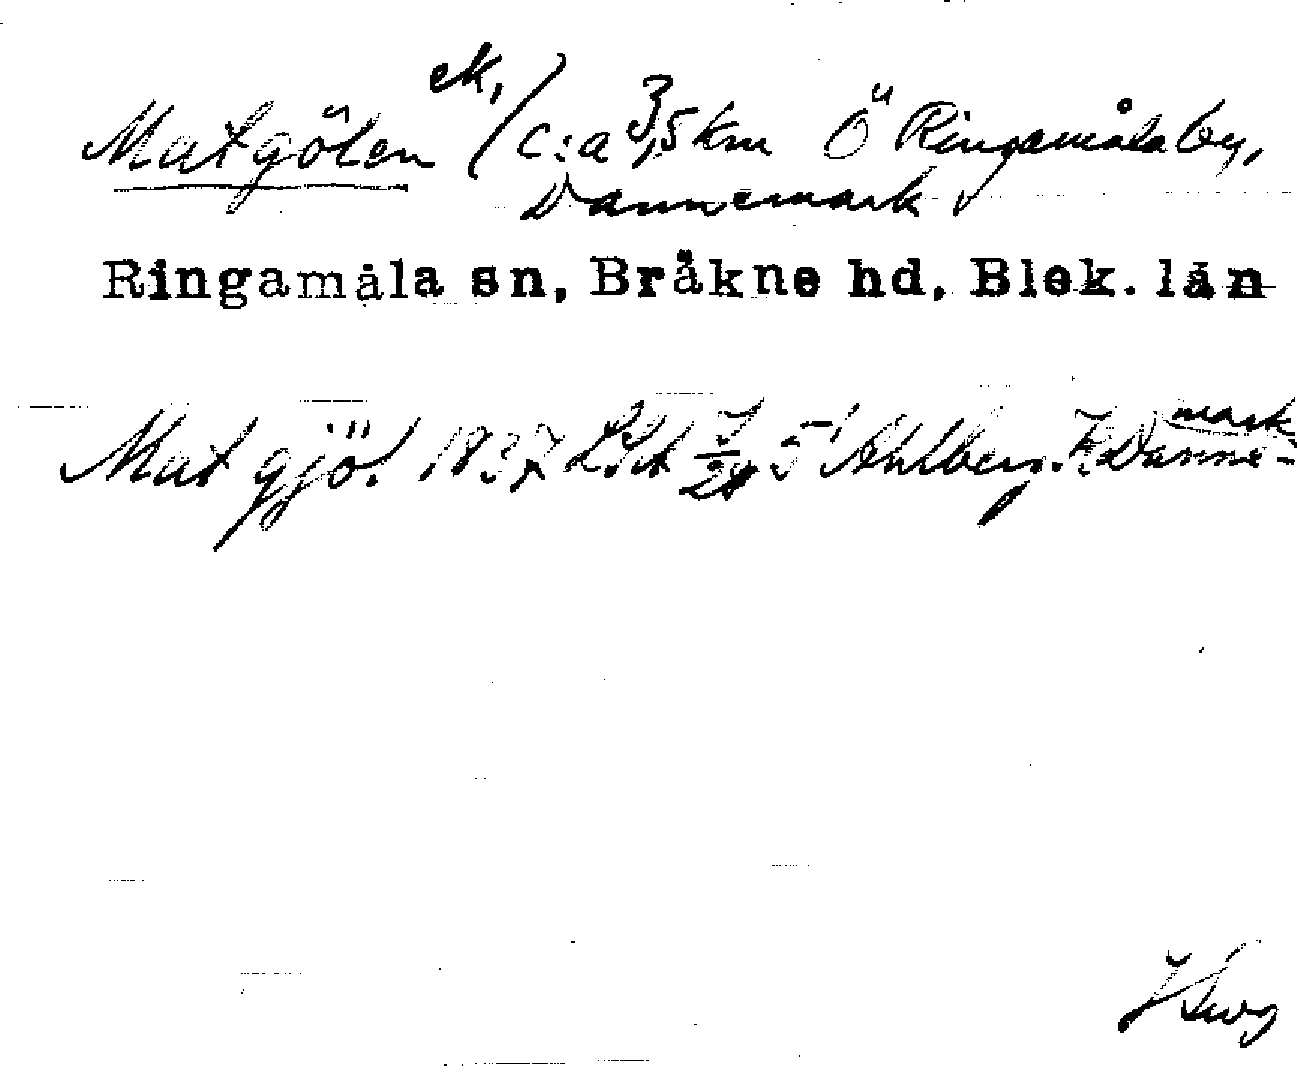 Matgölen ek, / c:a 3,5 km Ö Ringamåla by,
Dannemark
Ringamåla sn, Bråkne hd, Blek. län
Mat gjöl 1837 Ahlberg. Danne-
mark